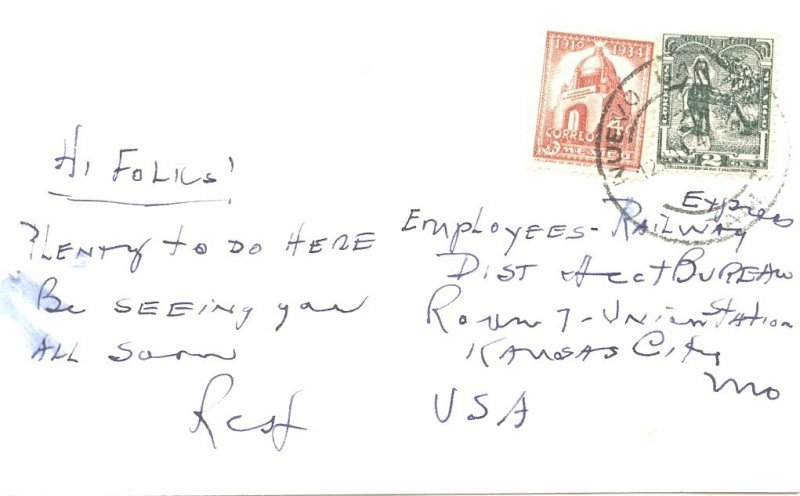 1910 1934
CORREOS 4¢
MEXICO
2
NUEVO
12
Hi Folks!
Plenty to do here
Be seeing you
all soon
Express
Employees - Railway
Dist Acct Bureau
Room 7 - Union Station
Kansas City
Mo
USA